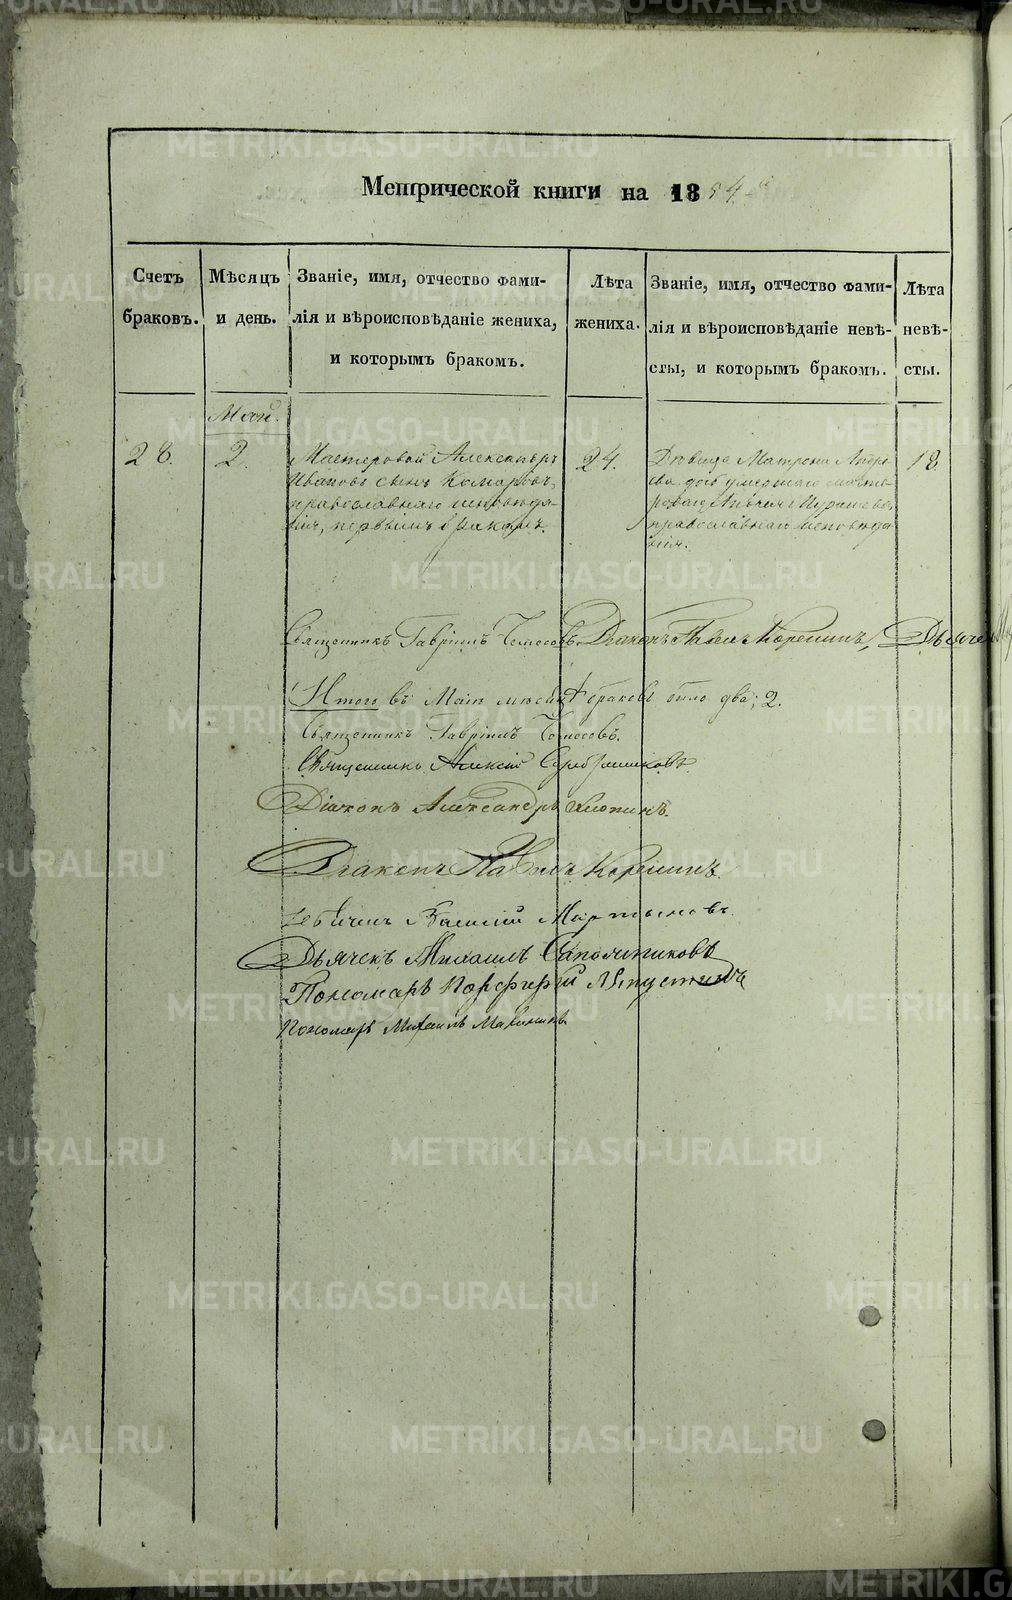 Метрической книги на 1854
Счетъ браковъ.
Мѣсяцъ и день.
Званіе, имя, отчество фами-
лія и вѣроисповѣданіе жениха,
и которымъ бракомъ.
Лѣта жениха.
Званіе, имя, отчество фами-
лія и вѣроисповѣданіе невѣ-
сты, и которымъ бракомъ.
Лѣта невѣ-
сты.
Май.
28.
2.
Мастеровой Александръ
Ивановъ сынъ Комаровъ,
православнаго исповѣда-
нія, первымъ бракомъ.
24.
Дѣвица Матрона
дочь умершаго масте-
роваго
православнаго исповѣда-
нія.
18
Священникъ Гавріилъ Діаконъ Павелъ Корелинъ,
Итого въ Маѣ мѣсяцѣ браковъ было два; 2.
Священникъ Гавріилъ
Священникъ Алексій
Діаконъ Александръ
Діаконъ Павелъ Корелинъ.
Василій Мартыновъ.
Дьячекъ Михаилъ Сапожниковъ
Пономарь Порфирій
Пономарь Михаилъ
METRIKI.GASO-URAL.RU